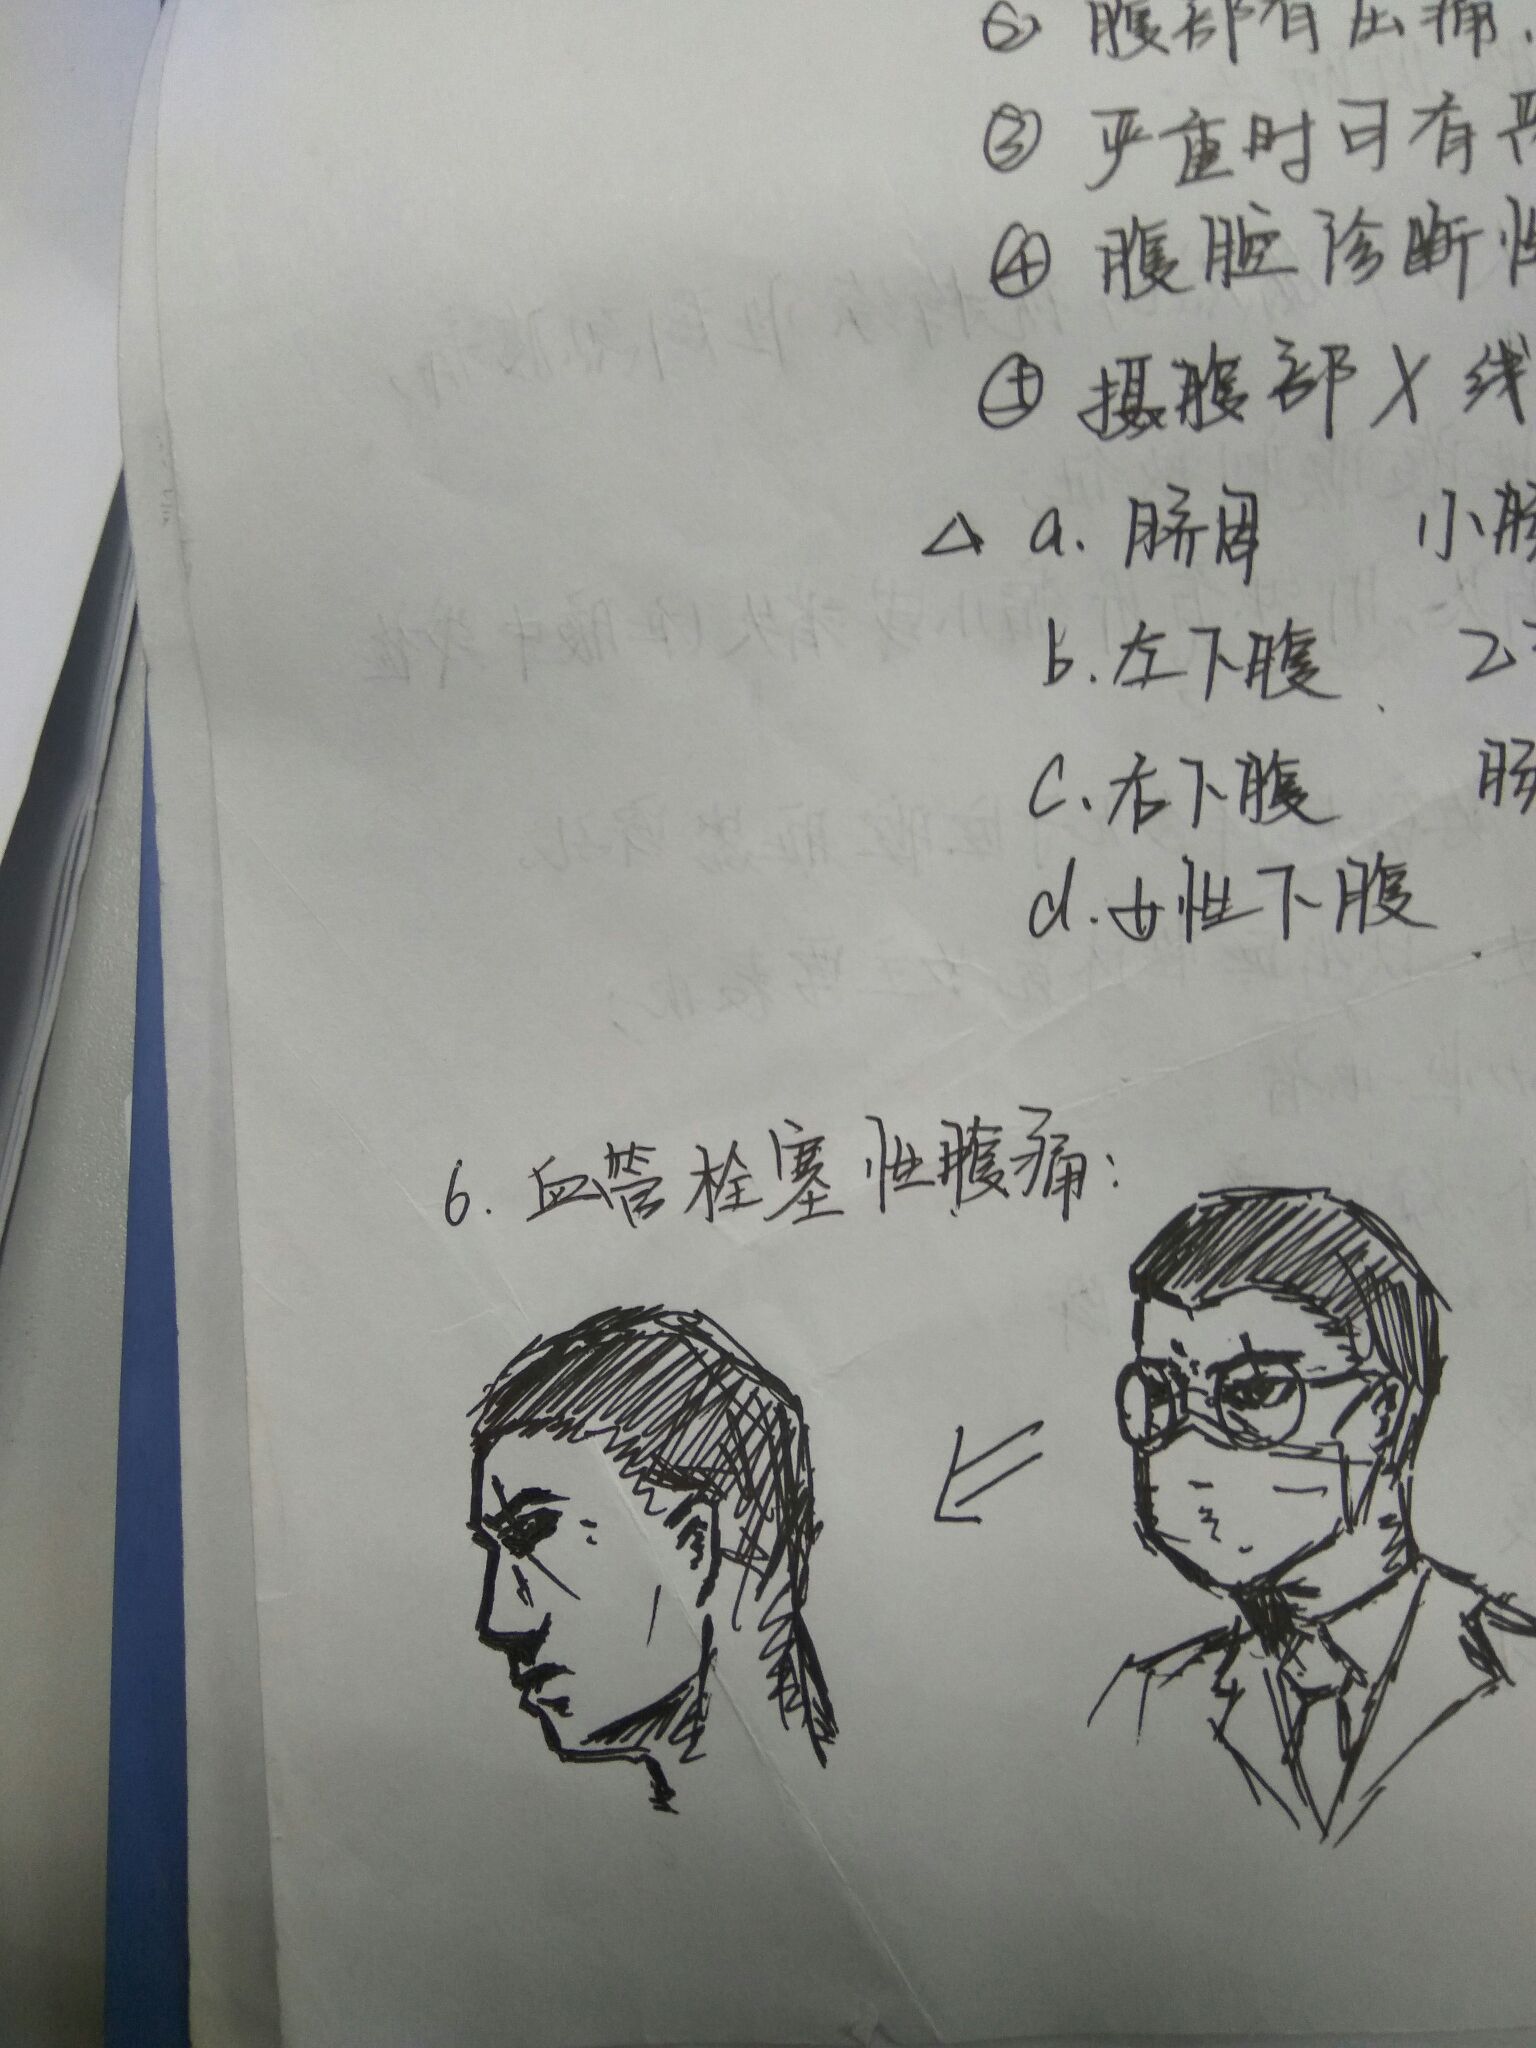 ② 腹部有压痛.
③ 严重时可有
④ 腹腔诊断性
⑤ 摄腹部X线
△ a. 脐周 小肠
b. 左下腹 乙
c. 右下腹 肠
d. 女性下腹
6. 血管栓塞性腹痛: